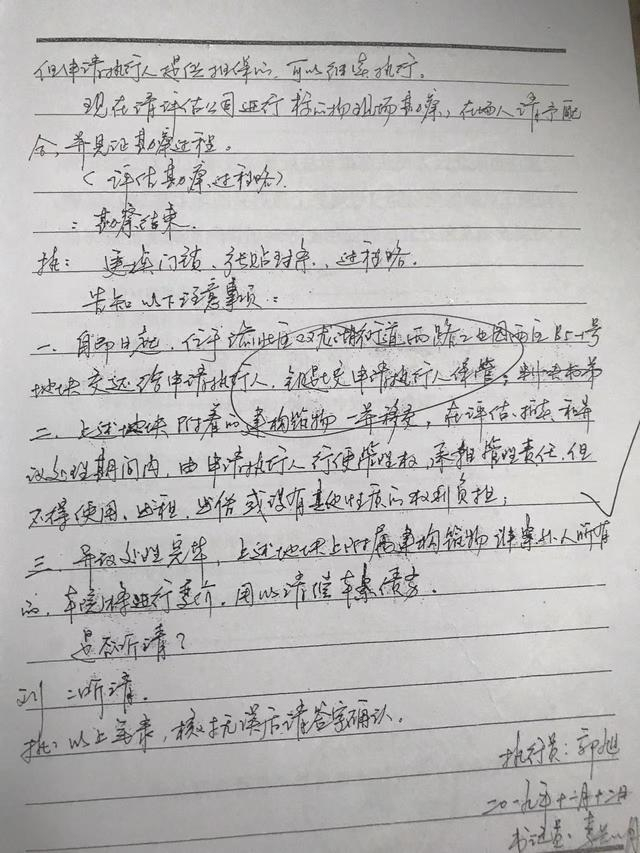 但申请执行人提供担保的，可以继续执行。
现在请评估公司进行标的物现场勘察，在场人请予配
合，并见证勘察过程。
（评估勘察过程略）
：勘察结束。
执：更换门锁、张贴封条，过程略。
告知以下注意事项：
一、自即日起，位于 区双龙湖街道 西路工业园西区B5-1号
地块交还给申请执行人，钥匙交申请执行人保管；
二、上述地块附着的建构筑物一并移交，在评估、拍卖和异
议处理期间内，由申请执行人行使管理权，承担管理责任，但
不得使用、出租、出借或设有其他性质的权利负担；
三、异议处理完毕，上述地块上附属建构筑物非案外人所有
的，本院将进行变价，用以清偿本案债务。
是否听清？
：听清。
执：以上笔录，核对无误后请签字确认。
执行员：郭旭
二〇一九年十二月十二日
书记员：